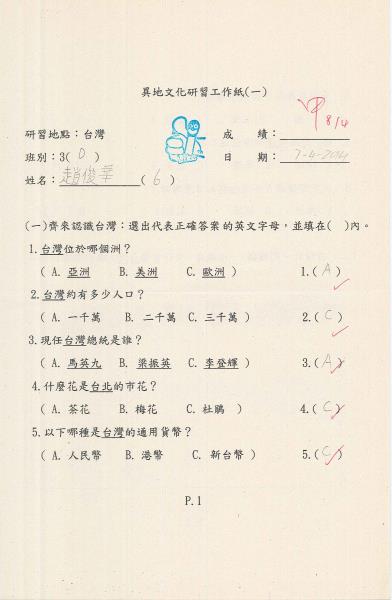 異地文化研習工作紙(一)
甲 8/4
研習地點：台灣 成績：
班別：3( D ) 日期：7-4-2014
姓名：趙俊華 ( 6 )
(一)齊來認識台灣：選出代表正確答案的英文字母，並填在( )內。
1.台灣位於哪個洲？
( A. 亞洲 B. 美洲 C. 歐洲 ) 1.( A )
2.台灣約有多少人口？
( A. 一千萬 B. 二千萬 C. 三千萬 ) 2.( C )
3.現任台灣總統是誰？
( A. 馬英九 B. 梁振英 C. 李登輝 ) 3.( A )
4.什麼花是台北的市花？
( A. 茶花 B. 梅花 C. 杜鵑 ) 4.( C )
5.以下哪種是台灣的通用貨幣？
( A. 人民幣 B. 港幣 C. 新台幣 ) 5.( C )
P.1